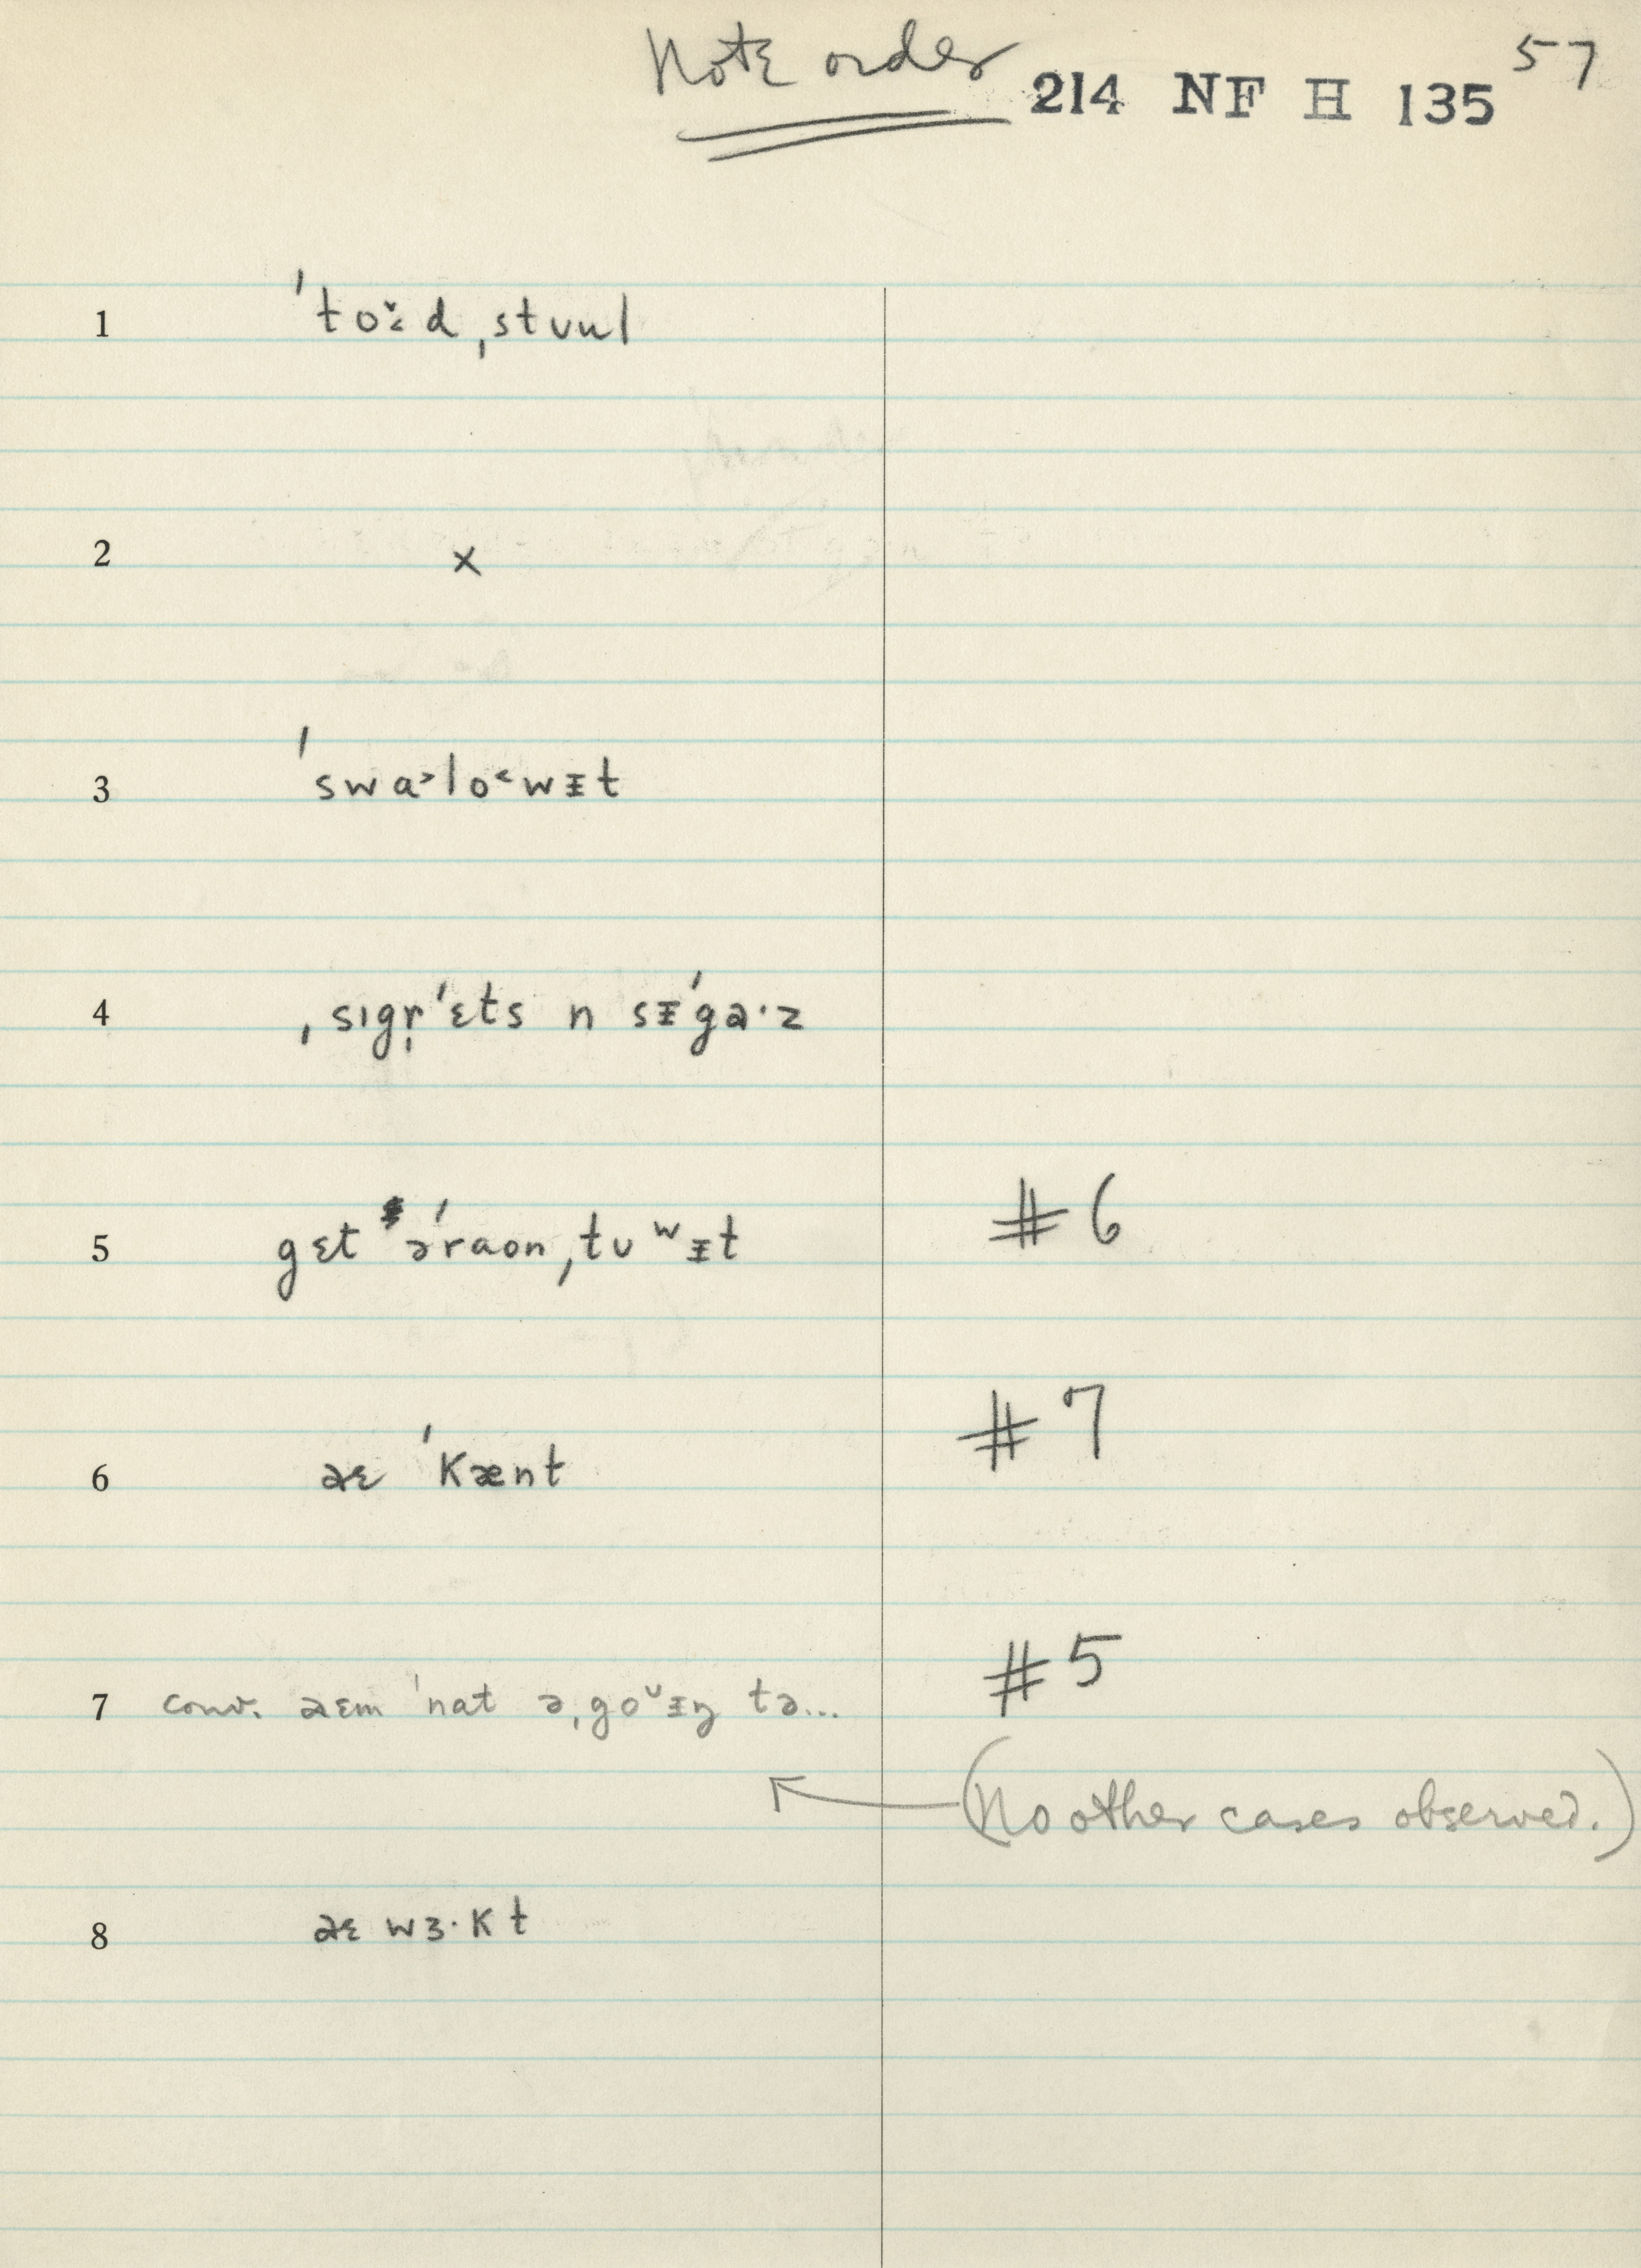 Note order 214 NF H 135 57
1 ˈtoˇ·d ˌstuul
2 x
3 ˈswa˃lo˂wᵻt
4 ˌsɪgr̩ˈɛts n sᵻˈga·z
5 gɛt əˈraon ˌtu ʷᵻt #6
6 aɛ ˈkænt #7
7 conv. aɛm ˈnat əˌgoᵛᵻŋ tə... #5
(No other cases observed.)
8 aɛ wɜ·kt